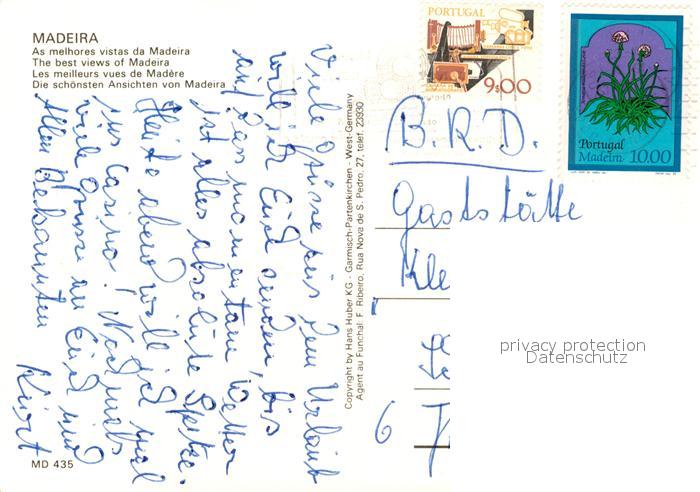 MADEIRA
As melhores vistas da Madeira
The best views of Madeira
Les meilleurs vues de Madère
Die schönsten Ansichten von Madeira
Viele Grüsse aus dem Urlaub
will ich Euch senden, bis
auf das momentane Wetter
ist alles absolute Spitze.
Heute abend will ich mal
ins Casino! Nochmals
viele Grüsse an Euch und
allen Bekannten
Kurt
MD 435
Copyright by Hans Huber KG - Garmisch-Partenkirchen - West-Germany
Agent au Funchal: F. Ribeiro, Rua Nova de S. Pedro, 27, telef. 23930
PORTUGAL
9$00
Portugal
Madeira 10.00
B.R.D.
Gaststätte
Kle
6
privacy protection
Datenschutz